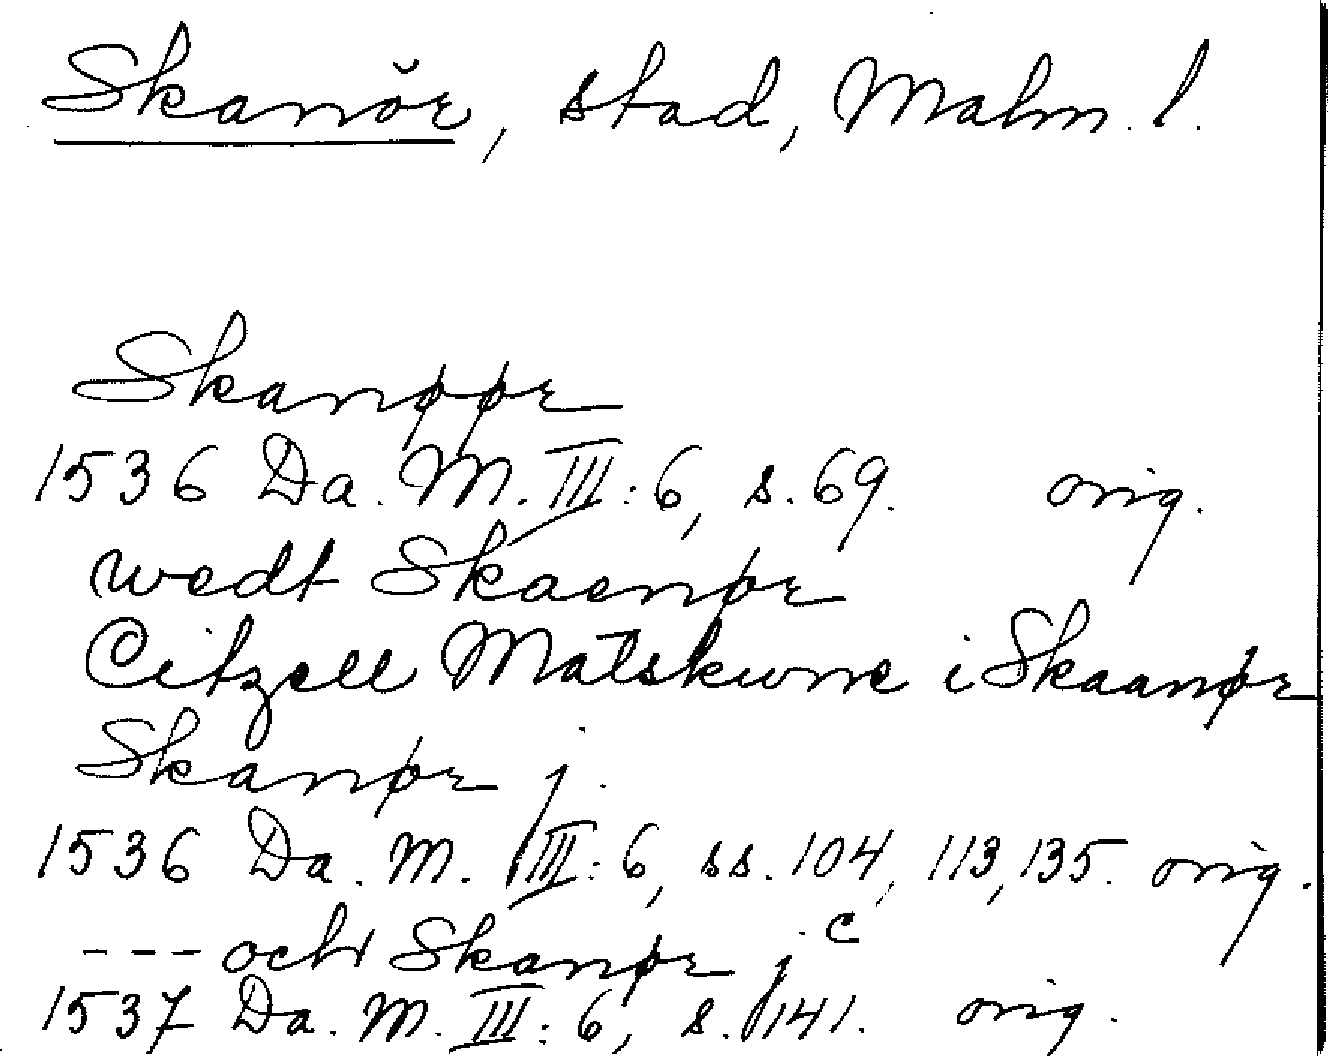 Skanör, stad, Malm. l.
Skanøør
1536 Da. M. III:6, s. 69. orig.
wedt Skaenør
Citzell Matskurre i Skaanør
Skanør j.
1536 Da. M. III:6, ss. 104, 113, 135. orig.
--- och Skanør j c
1537 Da. M. III:6, s. 141. orig.